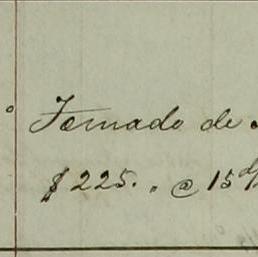 Tomado de
$225. " @ 15 d/